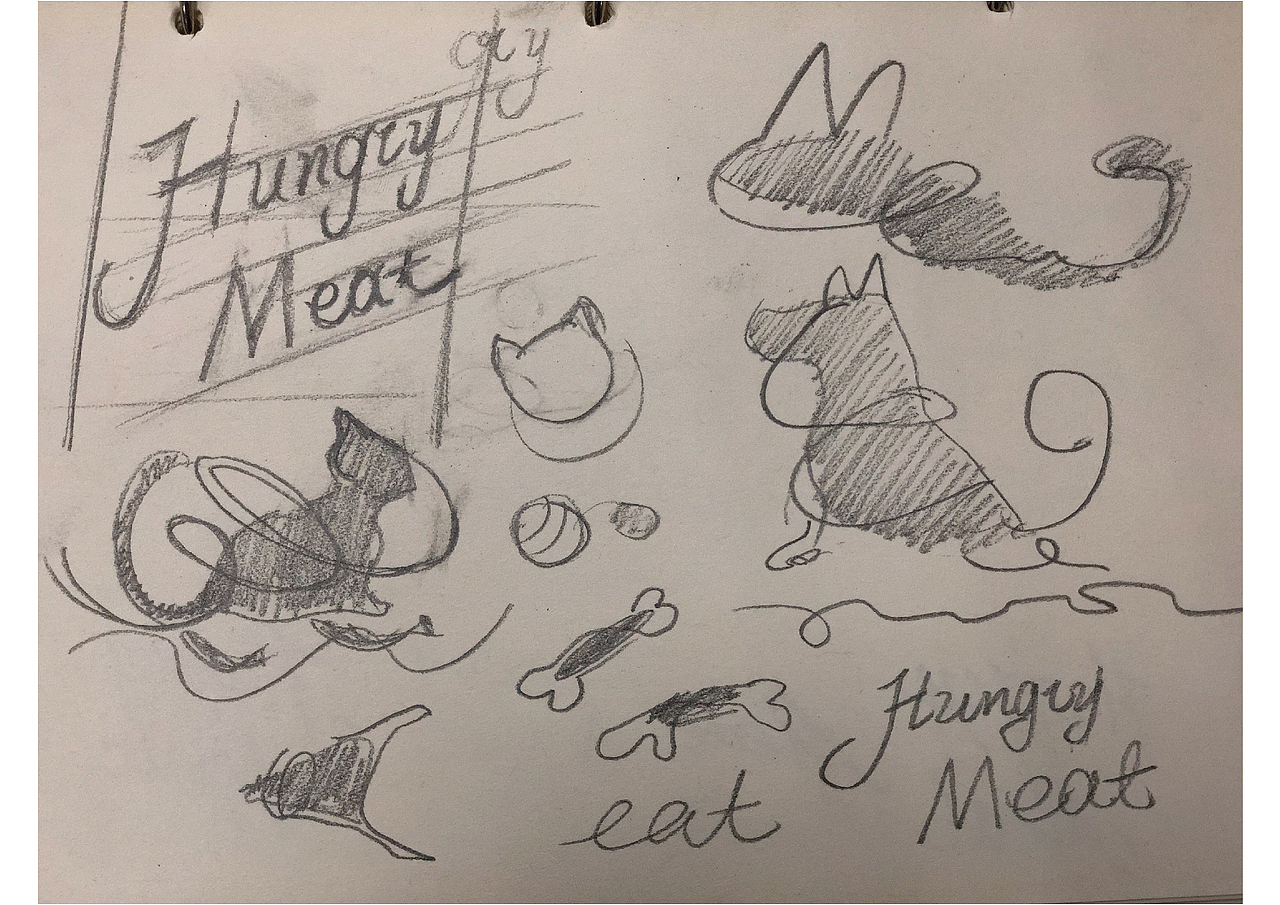 gy
Hungry
Meat
Hungry
Meat
eat